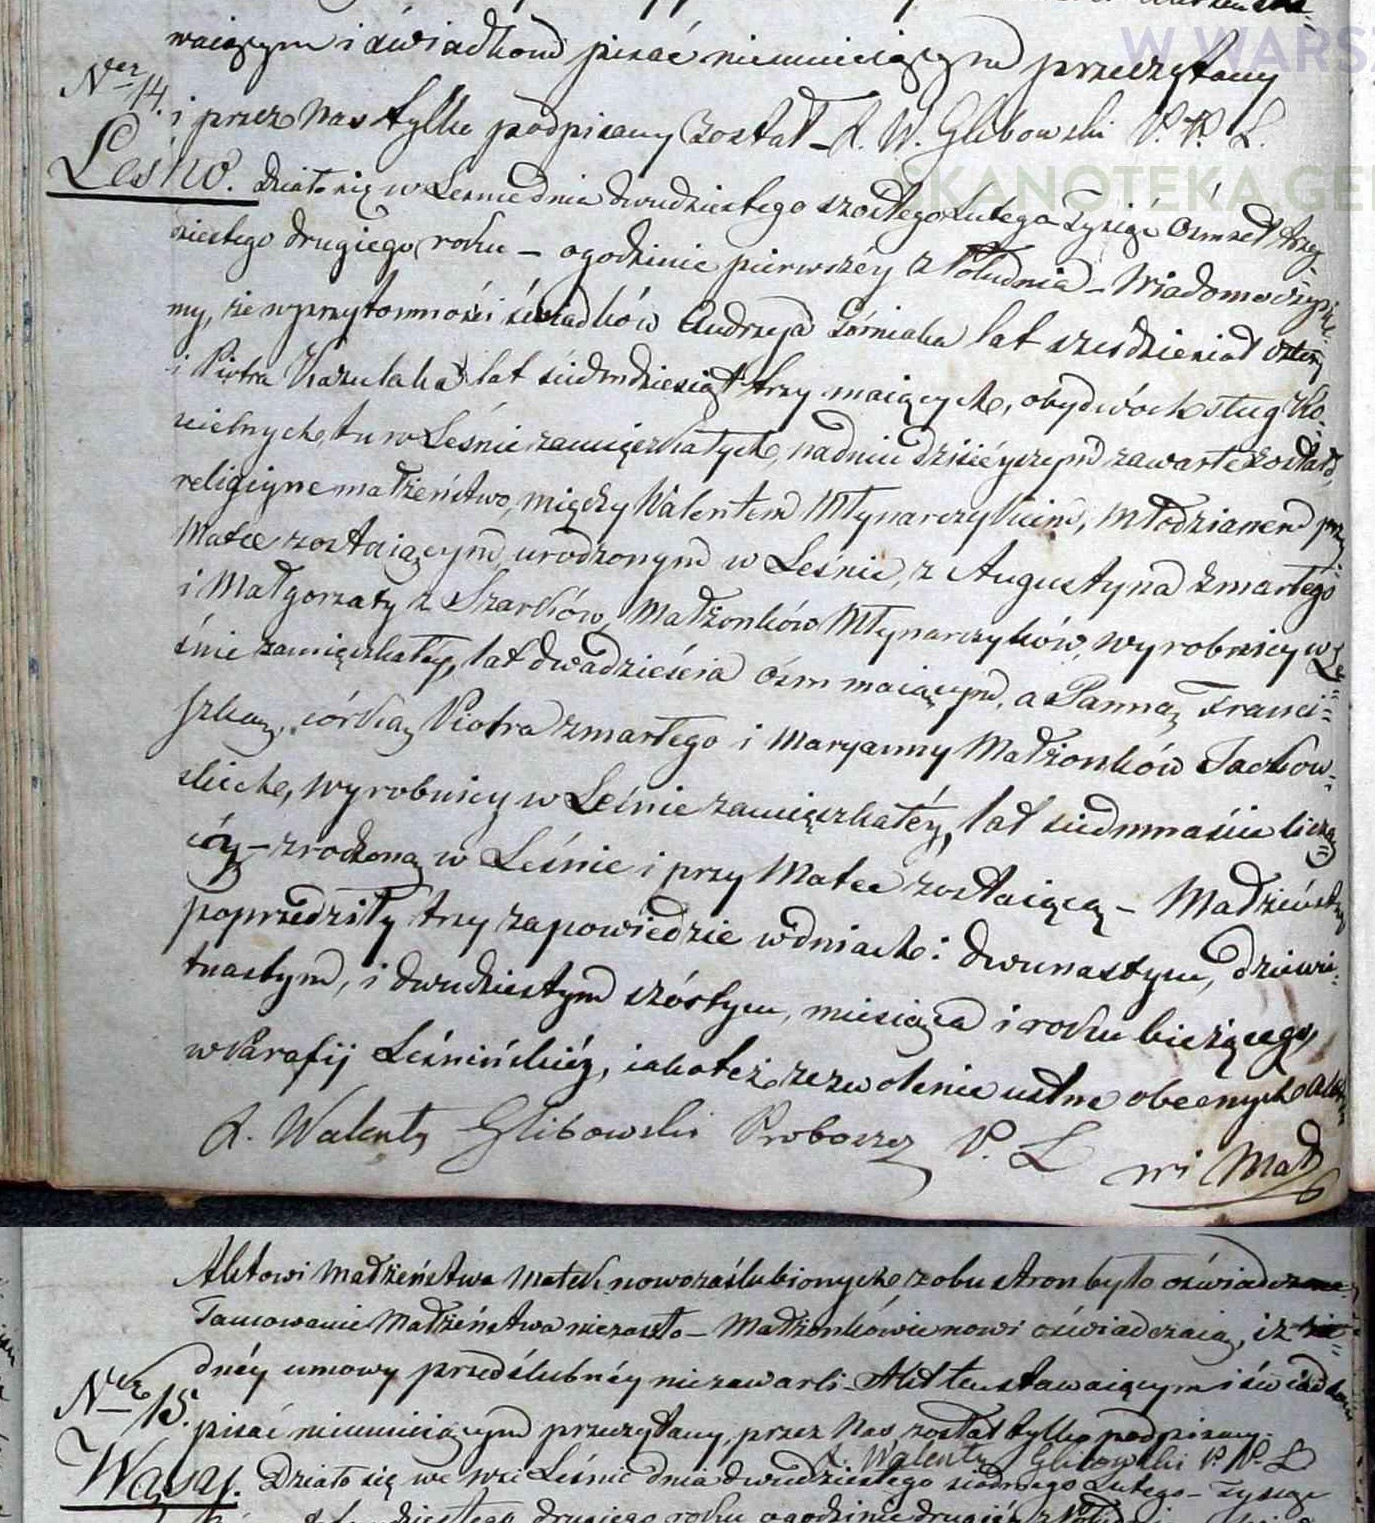 waiącym i świadkom pisać nieumieiącym przeczytany
Ner 14. i przez Nas tylko podpisany został – X. W. Glibowski P. P. L.
Leśno. Działo się w Leśnie dnia dwudziestego szóstego Lutego Tysiąc Ośmset trzy
dziestego drugiego roku – o godzinie pierwszéy z Południa – Wiadomo czyni-
my, że w przytomności świadków Andrzeja Górniaka lat sześdziesiąt cztery
i Piotra Kazulaka lat siedmdziesiąt trzy maiących, obydwóch sług Ko-
ścielnych, tu w Leśnie zamięszkałych, na dniu dzisieyszym zawarte zostało
religiyne małżeństwo, między Walentem Młynarczykiem, Młodzianem przy
Matce zostaiącym, urodzonym w Leśnie, z Augustyna zmarłego
i Małgorzaty z Szarków, Małżonków Młynarczyków, wyrobnicy w Le-
śnie zamięszkałéy, lat dwadzieścia ośm maiącym, a Panną Franci-
szką, córką Piotra zmarłego i Maryanny Małżonków Jackow-
skich, wyrobnicy w Leśnie zamięszkałéy, lat siedmnaście licza-
cą – zrodzoną w Leśnie i przy Matce zostaiącą – Małżeństwo
poprzedziły trzy zapowiedzie w dniach: dwunastym, dziewię-
tnastym, i dwudziestym szóstym, miesiąca i roku bieżącego,
w Parafij Leśnińskiéy, iako też zezwolenie ustne obecnych
X. Walenty Glibowski Proboszcz P. L.
wi Mał
Aktowi Małżeństwa Matek nowozaślubionych, z obu stron było oświadczone
Tamowanie Małżeństwa nie zaszło – Małżonkowie nowi oświadczaią, iż ża-
dnéy umowy przedślubnéy nie zawarli – Akt ten stawaiącym i świadkom
Ner 15. pisać nieumieiącym przeczytany, przez Nas został tylko podpisany.
X. Walenty Glibowski P. P. L.
Wąsy. Działo się we wsi Leśnie dnia dwudziestego siódmego Lutego – Tysiąc
drugiego roku o godzinie drugiéy z Południa